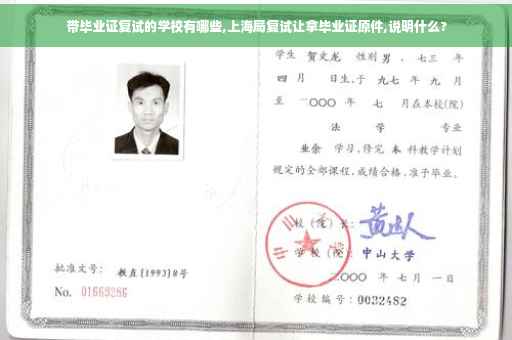 带毕业证复试的学校有哪些,上海局复试让拿毕业证原件,说明什么?
学生 贺文龙 性别 男 、七三 年
四 月 日生,于 九七 年 九 月
至 二〇〇〇 年 七 月在本校(院)
法 学 专业
业余 学习,修完 本 科教学计划
规定的全部课程,成绩合格,准予毕业。
校(院)长:
学校(院): 中山大学
二〇〇〇 年 七 月 一 日
批准文号: 教直(1993)8号
No. 01663286
学校编号: 0032482